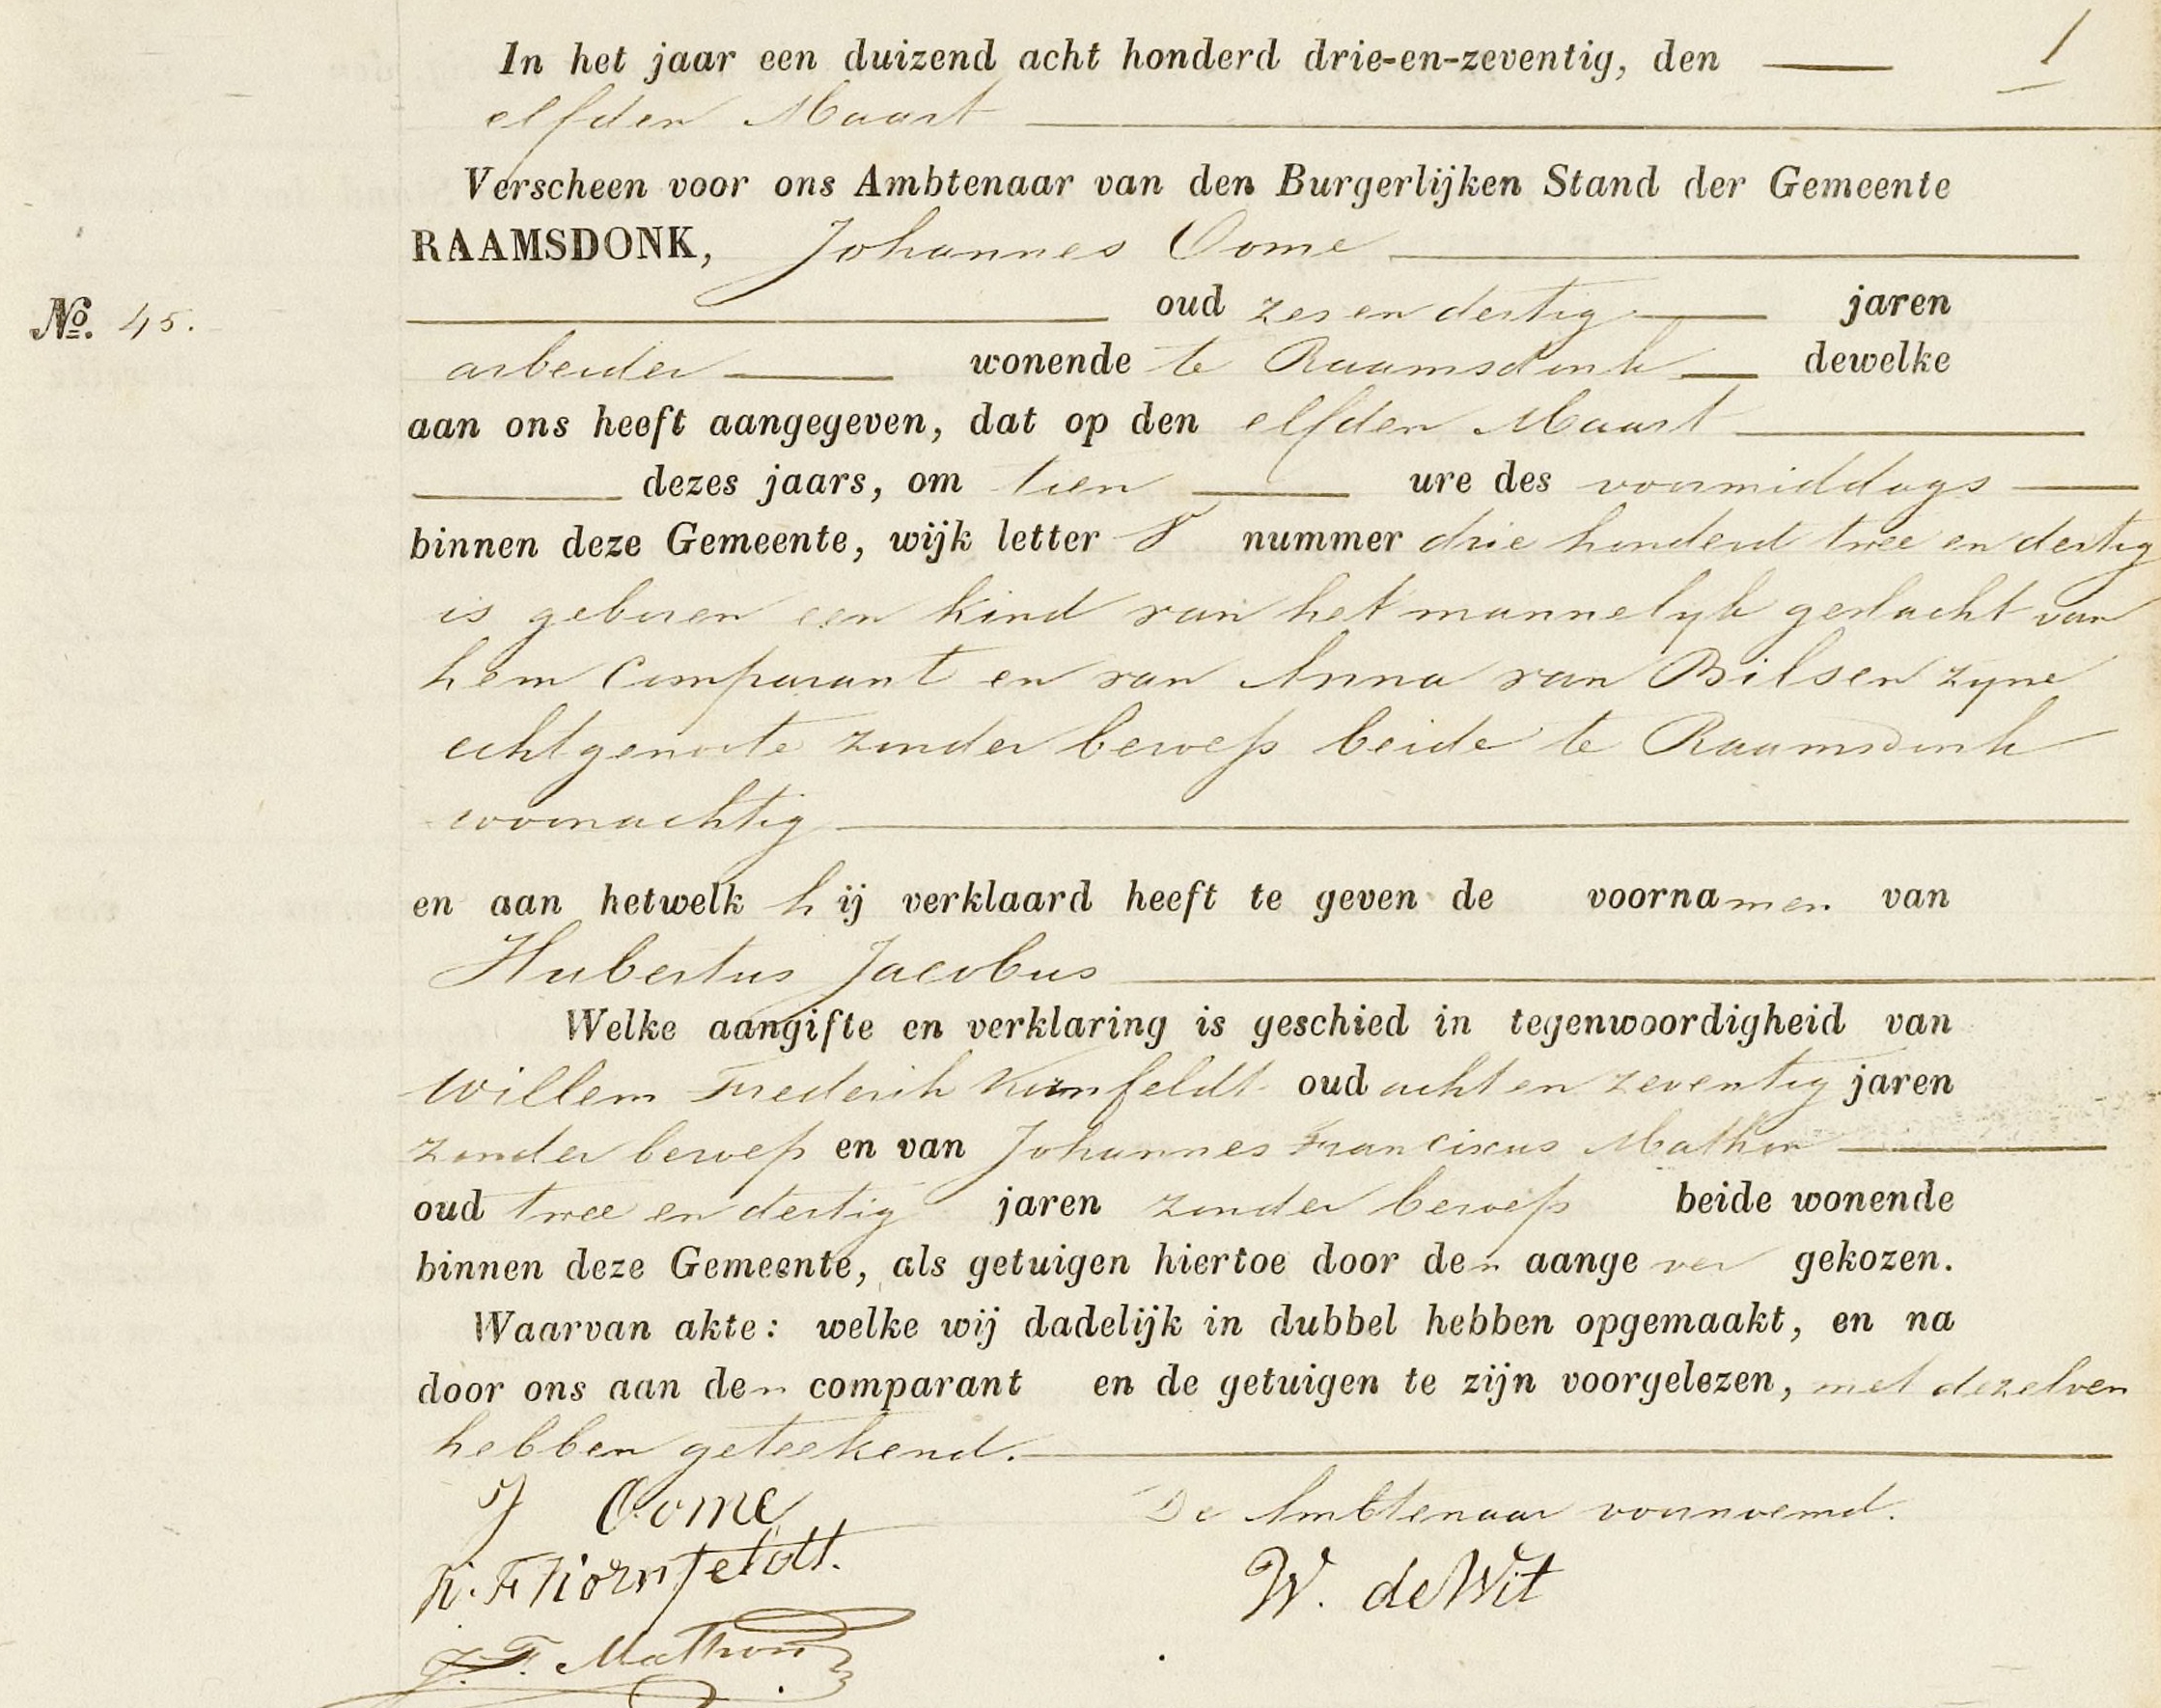 1
In het jaar een duizend acht honderd drie-en-zeventig, den
elfden Maart
Verscheen voor ons Ambtenaar van den Burgerlijken Stand der Gemeente
RAAMSDONK, Johannes Oome
No. 45.
oud zes en dertig jaren
arbeider wonende te Raamsdonk dewelke
aan ons heeft aangegeven, dat op den elfden Maart
dezes jaars, om tien ure des voormiddags
binnen deze Gemeente, wijk letter nummer drie honderd twee en dertig
is geboren een kind van het mannelyk geslacht van
hem Comparant en van Anna van Bilsen zyne
echtgenoote zonder beroep beide te Raamsdonk
woonachtig
en aan hetwelk hij verklaard heeft te geven de voornamen van
Hubertus Jacobus
Welke aangifte en verklaring is geschied in tegenwoordigheid van
Willem Frederik Kornfeldt oud acht en zeventig jaren
zonder beroep en van Johannes Franciscus Mathon
oud twee en dertig jaren zonder beroep beide wonende
binnen deze Gemeente, als getuigen hiertoe door den aangever gekozen.
Waarvan akte: welke wij dadelijk in dubbel hebben opgemaakt, en na
door ons aan den comparant en de getuigen te zijn voorgelezen, met dezelven
hebben geteekend.
J Oome
De Ambtenaar voornoemd.
W. F Kornfeldt.
W. de Wit
J. F. Mathon